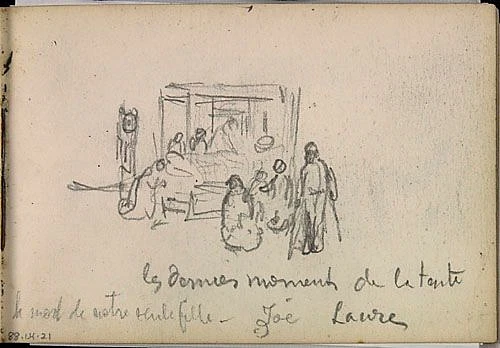 les derniers moments de la tante
la mort de notre seule fille - Zoé Laure
88.14.21